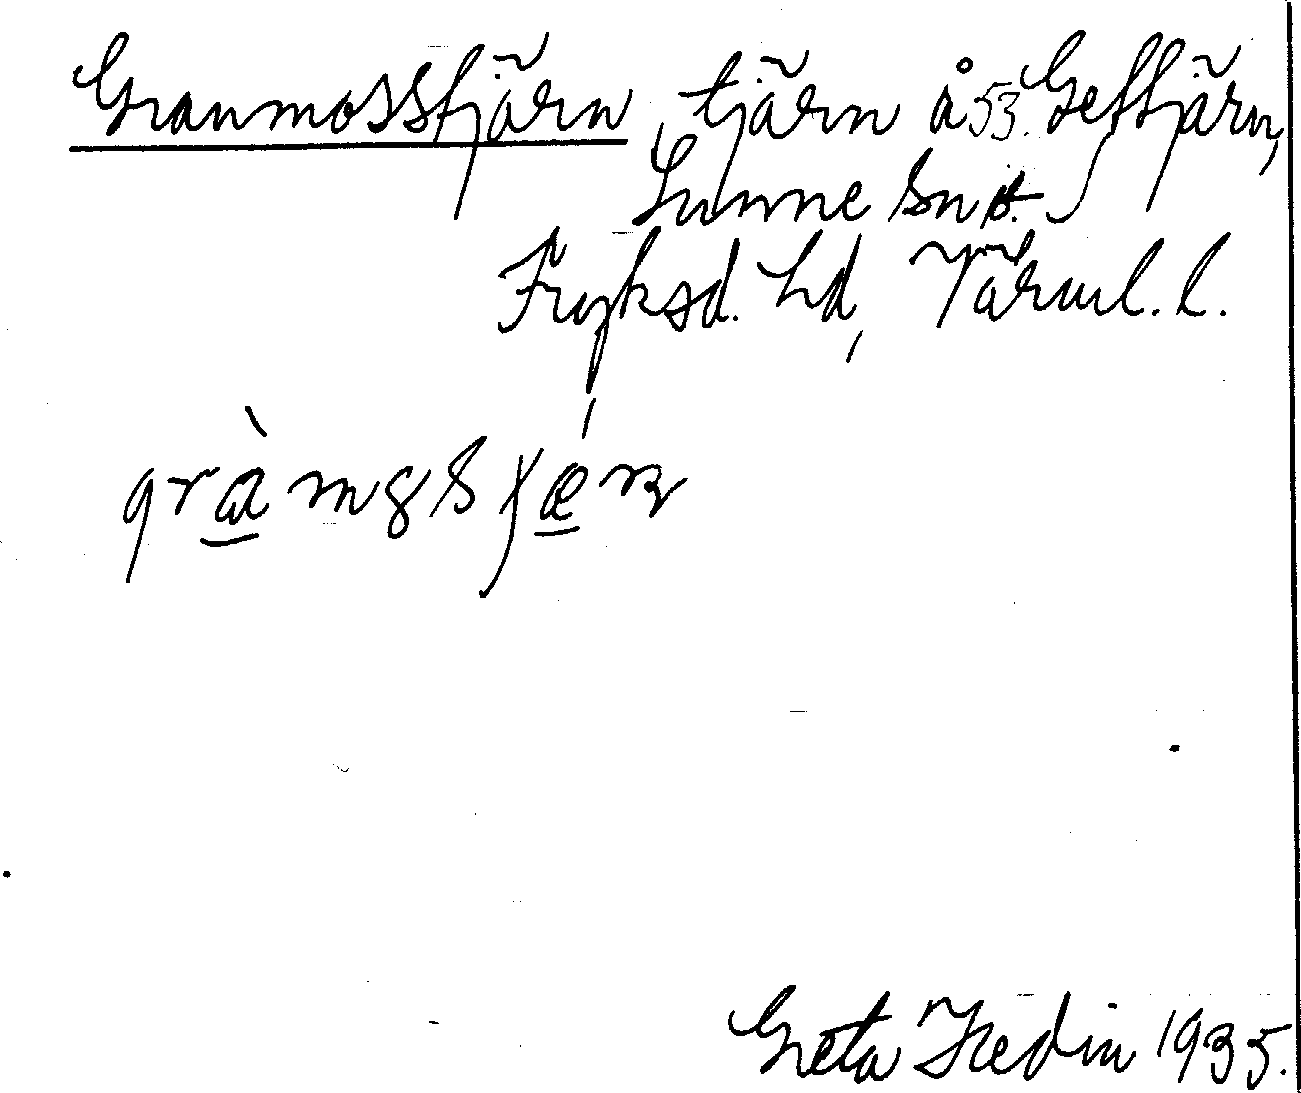 Granmosstjärn, tjärn å 53. Gettjärn,
Sunne sn
Fryksd. hd, Värml. l.
Greta Hedin 1935.